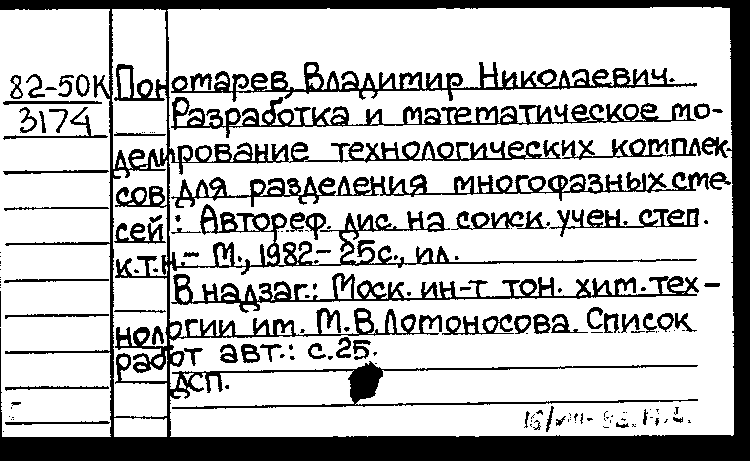 82-50К Пономарев, Владимир Николаевич.
3174 Разработка и математическое мо-
делирование технологических комплек-
сов для разделения многофазных сме-
сей : Автореф. дис. на соиск. учен. степ.
к.т.н.- М., 1982.- 25с., ил.
В надзаг.: Моск. ин-т тон. хим. тех-
нологии им. М.В.Ломоносова. Список
работ авт.: с.25.
ДСП.